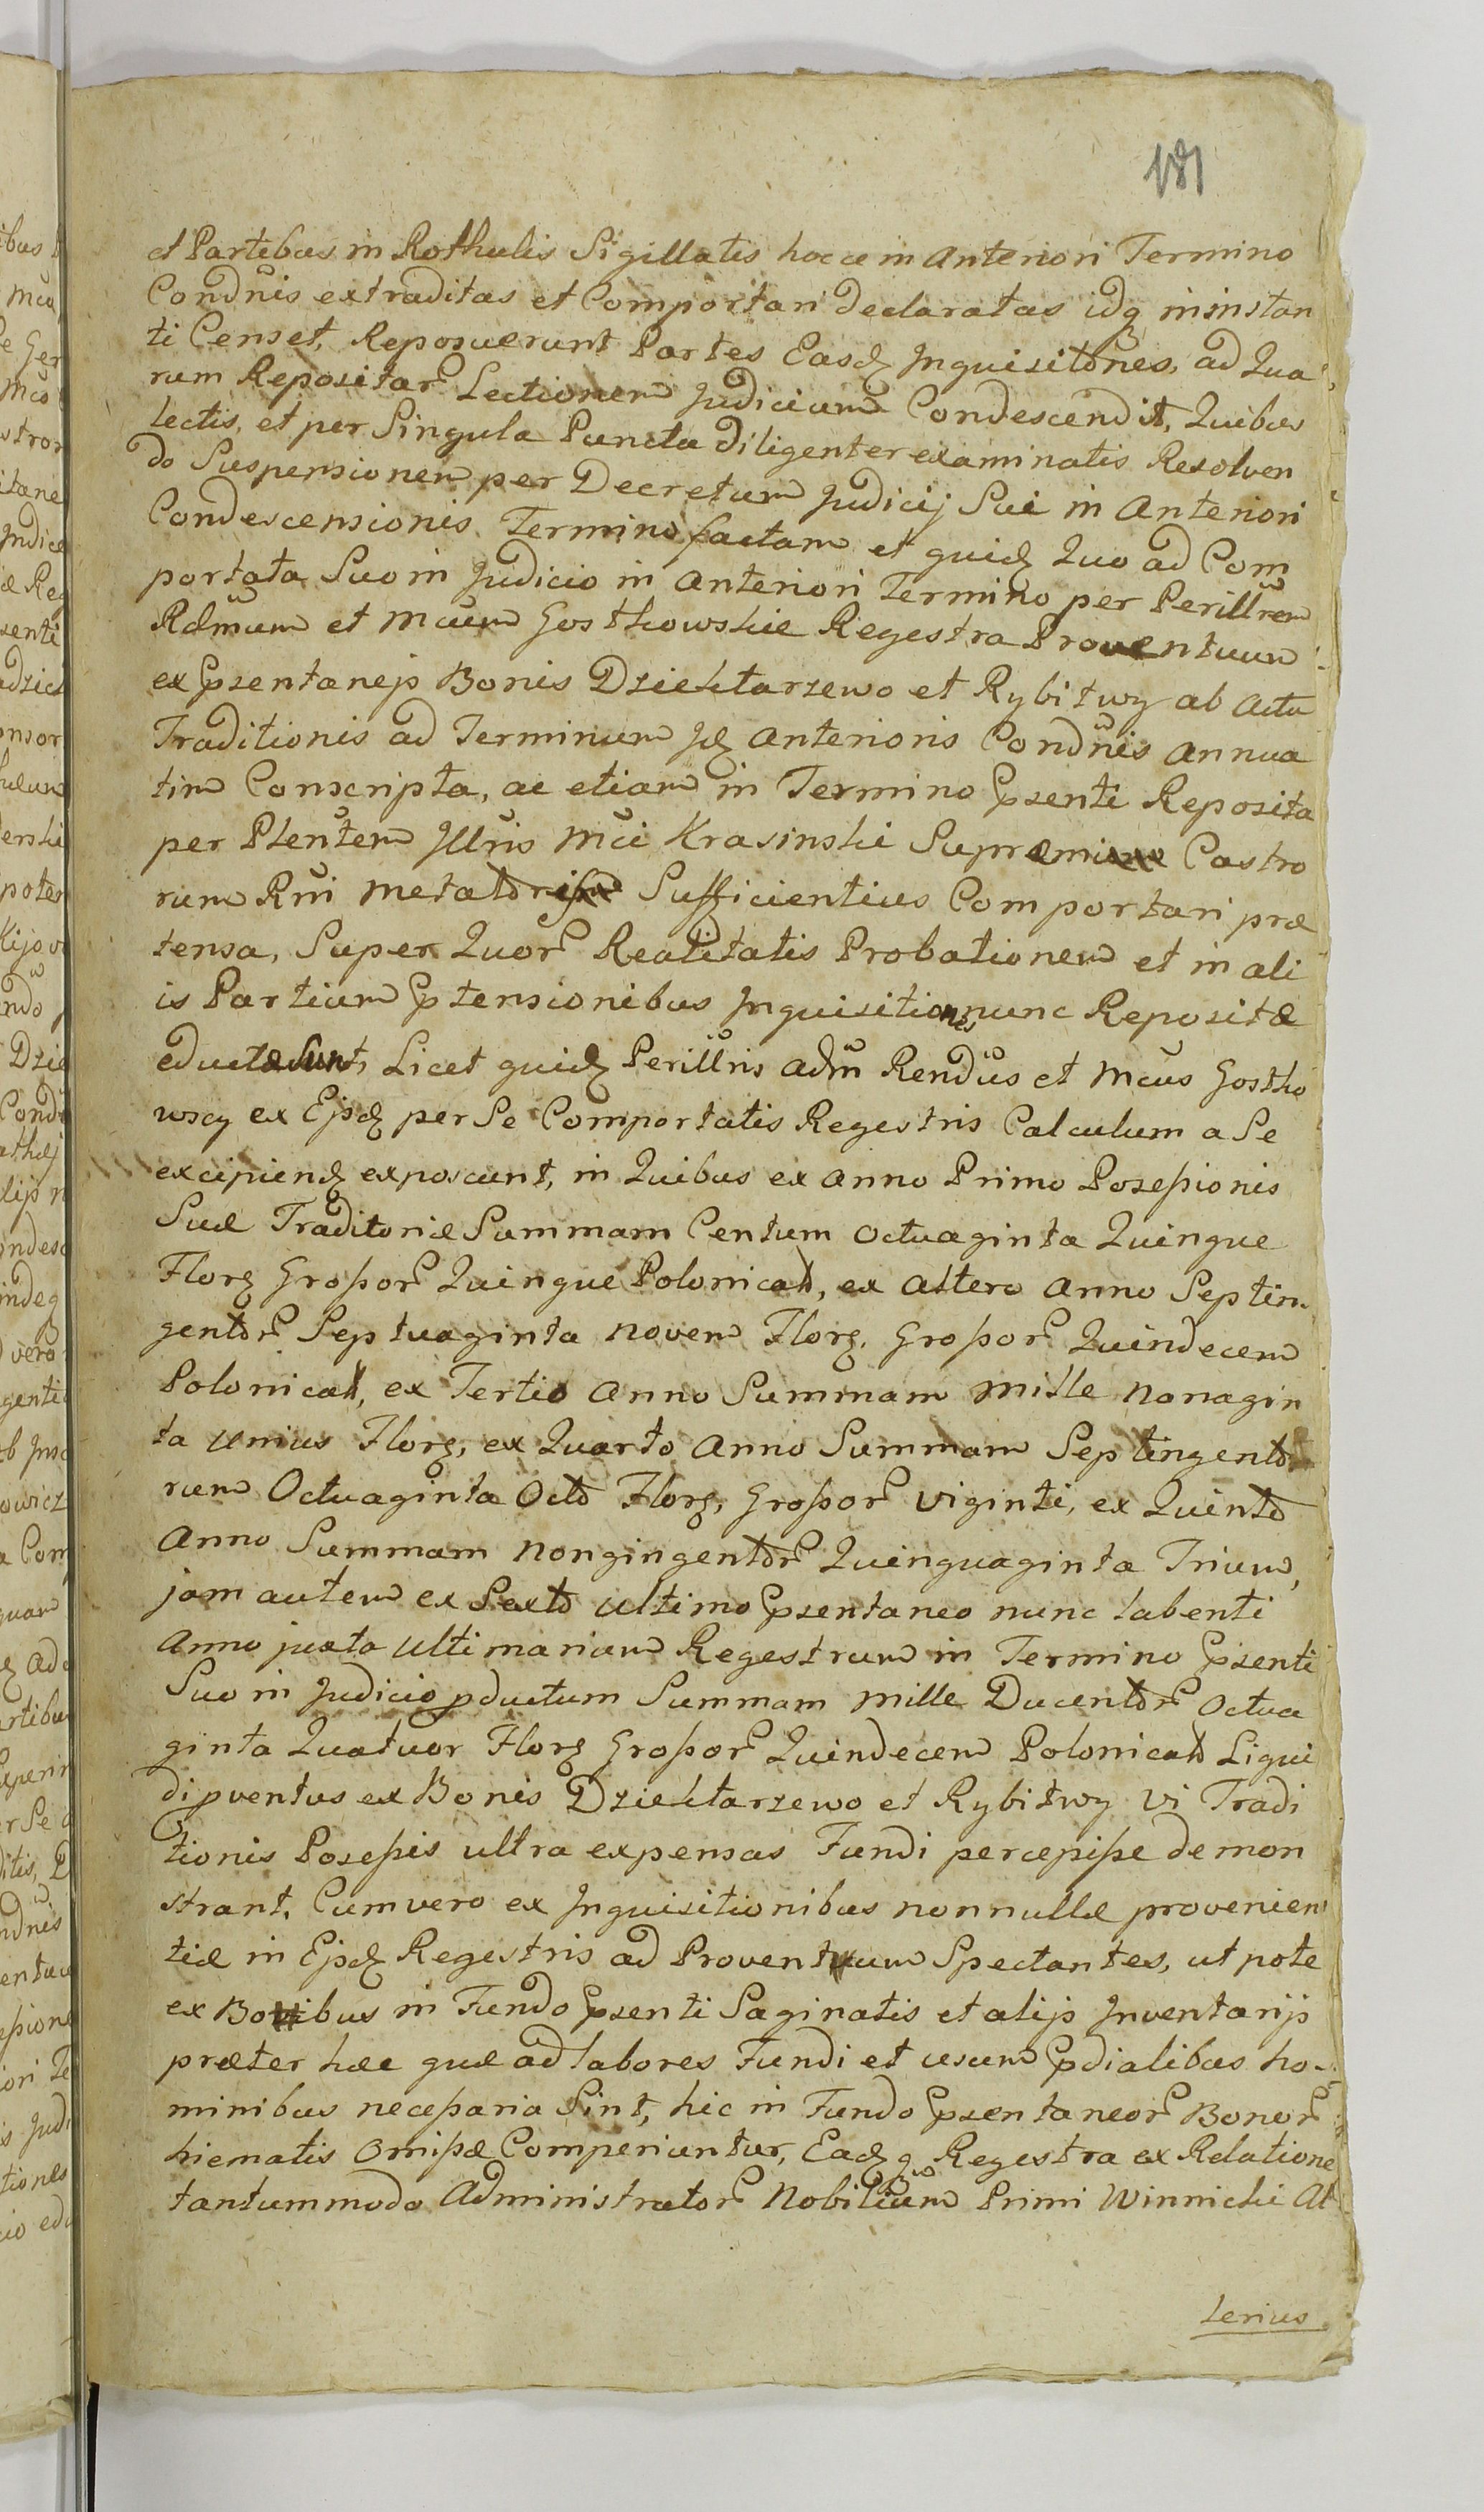 181
et Partibus in Rothulis Sigillatis hocce in Anteriori Termino
Condn̄is extraditas et Comportari declaratas idq̃ in instan
ti Censet, Reposuerunt Partes Easdʒ Inquisitōnes, ad Qua
rum Repositar̃ Lectionem Judicium Condescendit, Quibus
lectis, et per Singula Puncta diligenter examinatis Resolven
do Suspensionem per Decretum Judicij Sui in Anteriori
Condescensionis Termino factam et quidʒ Quo ad Com
portata Suo in Judicio in Anteriori Termino per Perillr̃em
Rd̃mum et Mcũm Gosthowskie Regestra Proventuum
ex Pr̃sentanejs Bonis Dziektarzewo et Rybitwy ab Actu
Traditionis ad Terminum Jdʒ Anterioris Condn̄is Annua
tim Conscripta, ac etiam in Termino Pr̃senti Reposita
per Plent̃em Illr̃is Mc̃i Krasinski Supremi Castro
rum Rñi Metatoris Sufficientius Comportari præ
tensa, Super Quor̃ Realitatis Probationem et in ali
is Partium Pr̃tensionibus Inquisitiones nunc Repositæ
eductæ Sunt, Licet quidʒ Perillr̃is Adm̃ Rendũs et Mcũs Gostho
wscy ex Ejsdʒ per Se Comportatis Regestris Calculum a Se
excipiendʒ exposcunt, in Quibus ex Anno Primo Poseßionis
Suæ Traditoriæ Summam Centum Octuaginta Quinque
Florʒ Großor̃ Quinque Polonical, ex Altero Anno Septin
gentor̃ Septuaginta Novem Florʒ, Großor̃ Quindecem
Polonical, ex Tertio Anno Summam Mille Nonagin
ta Unius Florʒ, ex Quarto Anno Summam Septingento
rum Octuaginta Octo Florʒ, Großor̃ Viginti, ex Quinto
Anno Summam Nongingentor̃ Quinquaginta Trium,
jam autem ex Sexto Ultimo Pr̃sentaneo nunc labenti
Anno juxta Ultimarium Regestrum in Termino Pr̃senti
Suo in Judicio p̃ductum Summam Mille Ducentor̃ Octua
ginta Quatuor Florʒ Großor̃ Quindecem Polonical Liqui
di p̃ventus ex Bonis Dziektarzewo et Rybitwy Vi Tradi
tionis Poseßis ultra expensas Fundi percepiße demon
strant. Cum vero ex Inquisitionibus nonnullæ provenien
tiæ in Ejsdʒ Regestris ad Proventuum Spectantes, ut pote
ex Bovibus in Fundo Pr̃senti Saginatis et alijs Inventarijs
præter hæc quæ ad labores Fundi et usum Pr̃dialibus ho-
minibus neceßaria Sint, hic in Fundo Pr̃sentaneor̃ Bonor̃
hiematis Omißæ Comperiuntur, Eadʒq̃ Regestra ex Relatione
tantummodo Administrator̃ Nobilium Primi Winnicki Al
terius